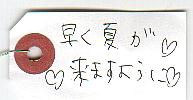 早く夏が♡
♡来ますように♡